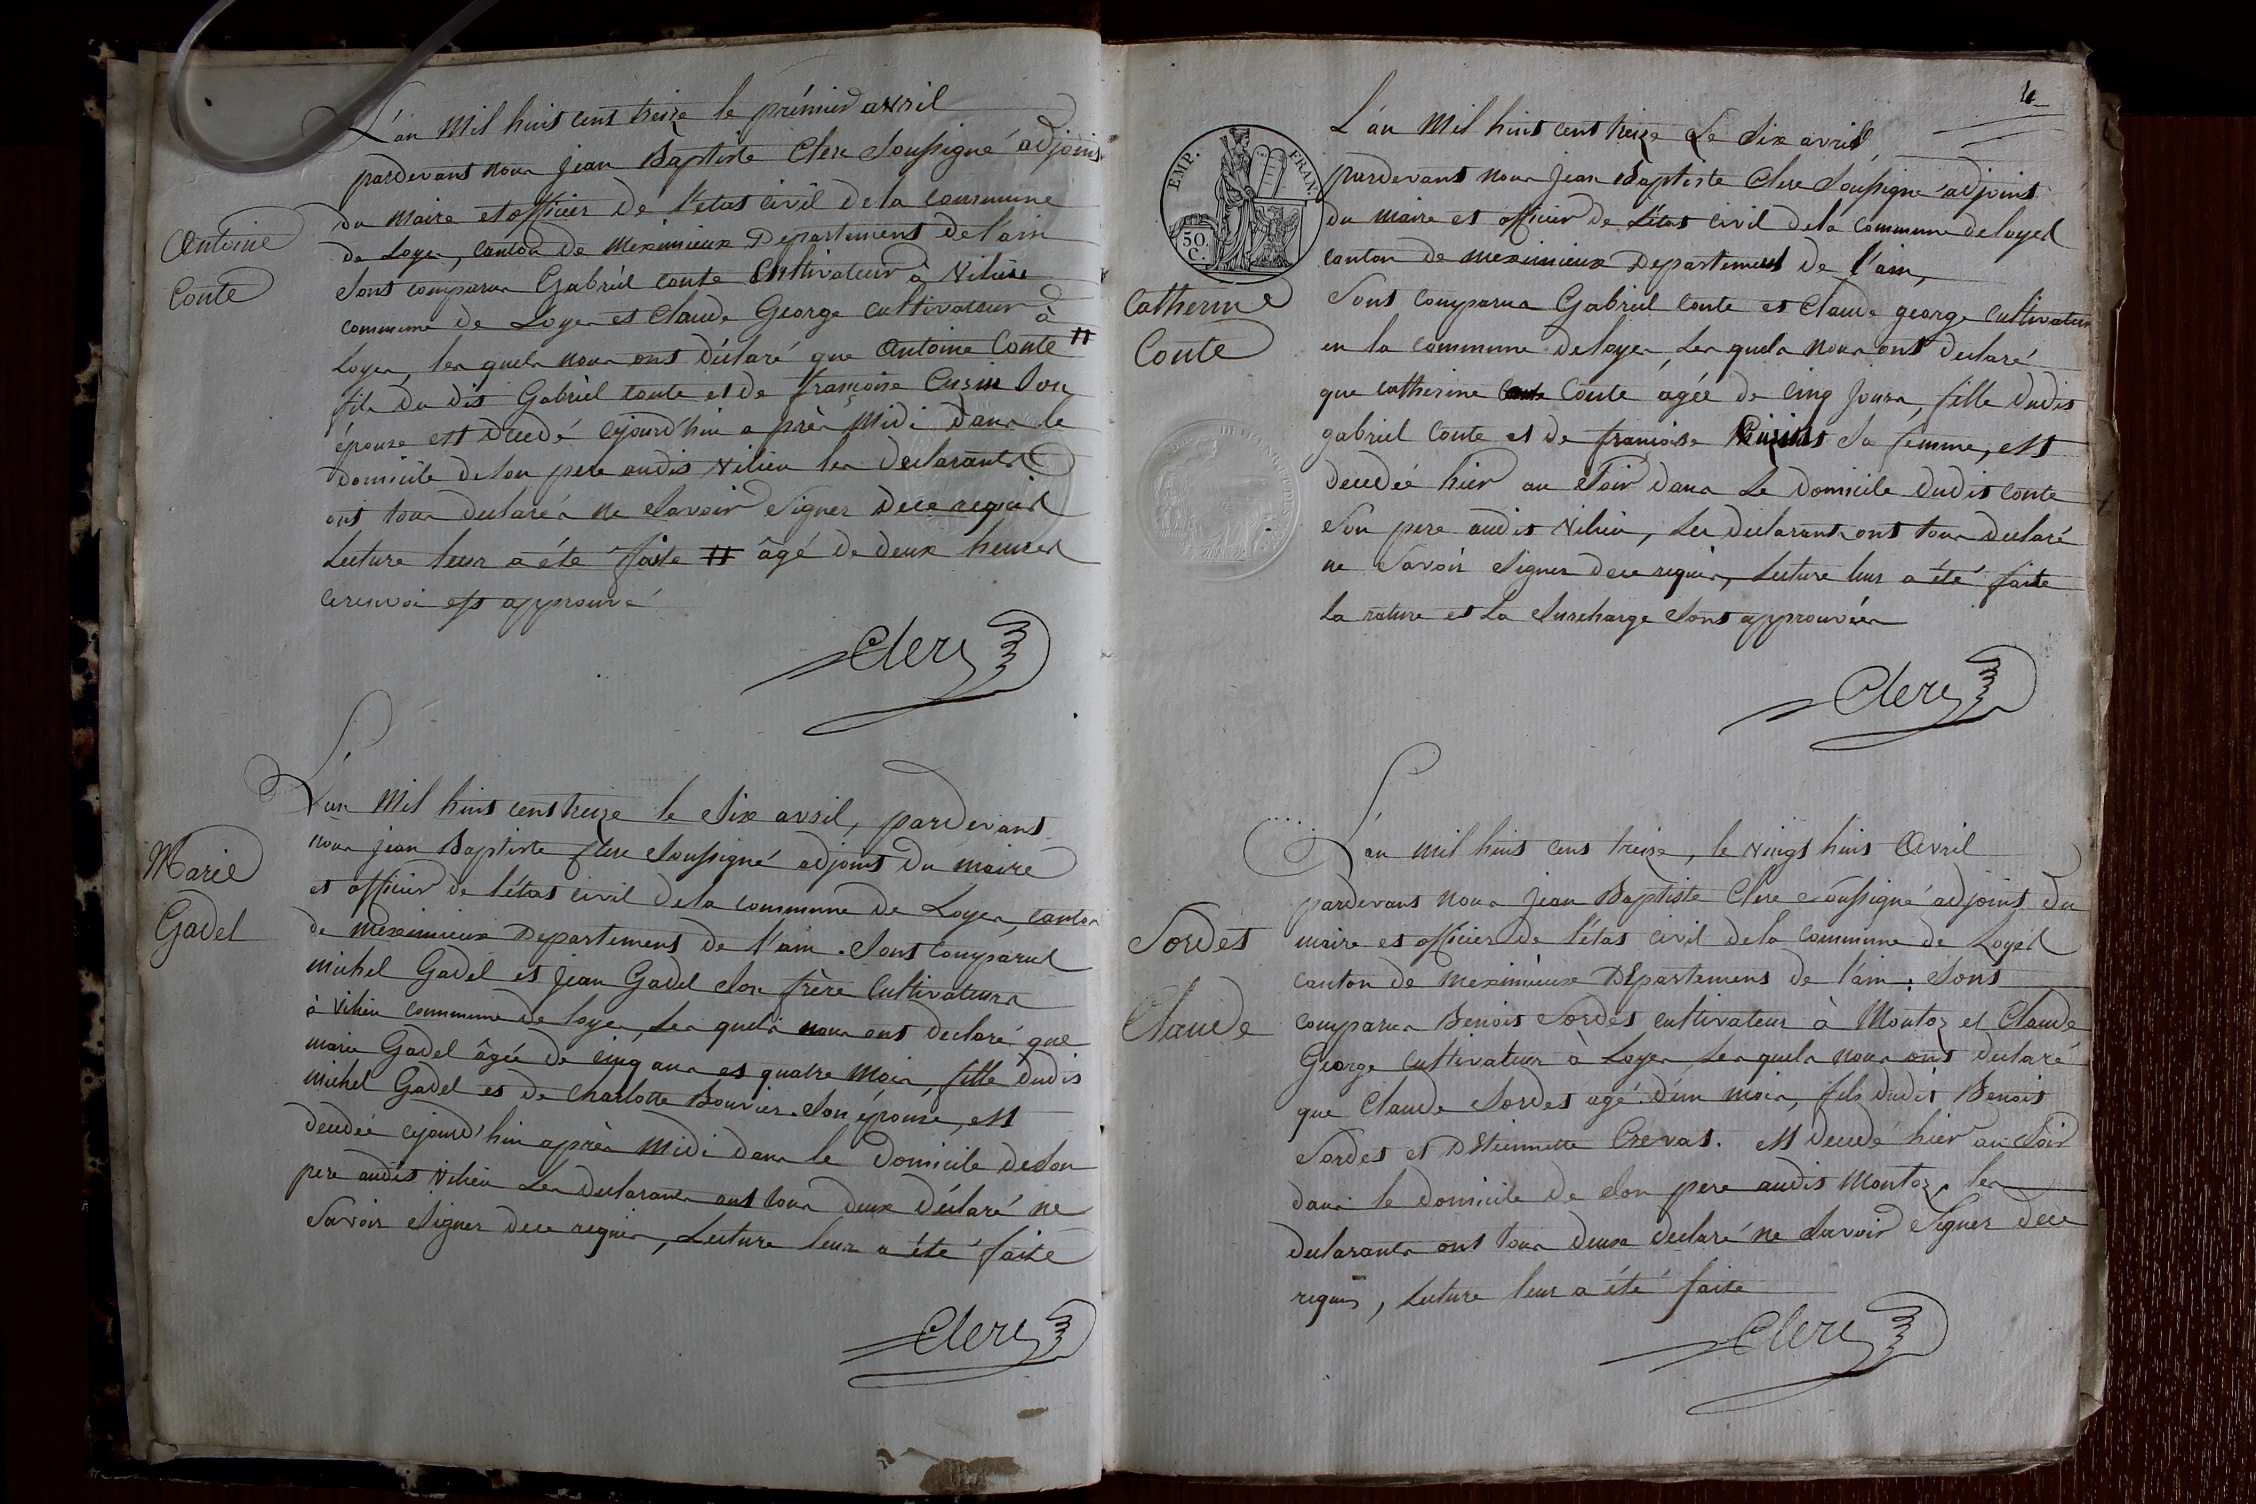 L'an Mil huit cent treize le prémier avril
pardevant nous jean Baptiste Clerc Soussigné adjoint
du Maire et officier de l'état civil de la commune
de Loyes, canton de Meximieux Departement de l'ain
Antoine
Conte
Sont comparus Gabriël conte Cultivateur à Vilieu
commune de Loyes et Claude George cultivateur à
Loyes, les quels nous ont déclaré que Antoine Conte #
fils du dit Gabriël conte et de françoise Cusin Son
épouse est décedé cejourd'hui après Midi dans le
domicile de Son pere audit Vilieu les declarants
ont tous declarés ne Savoir Signer de ce requis
Lecture leur a été faite # âgé de deux heures
ce renvoi est approuvé
Clerc
L'an Mil huit cent treize le Six avril, pardevant
nous jean Baptiste Clerc Soussigné adjoint du maire
et officier de l'état civil de la commune de Loyes, canton
de meximieux Departement de l'ain. Sont comparus
Marie
Gadel
michel Gadel et jean Gadel Son frère Cultivateurs
à Vilieu commune de loyes, les quels nous ont declaré que
marie Gadel âgée de cinq ans et quatre Mois, fille dudit
michel Gadel et de Charlotte Bouvier Son épouse, est
decedée cejourd'hui après Midi dans le domicile de Son
pere audit Vilieu Les declarants ont tous deux déclaré ne
Savoir Signer de ce requis, Lecture leur a été faite
Clerc
4
EMP. FRAN.
50.
C.
L'an Mil huit cent treize Le Six avril
pardevant nous Jean Baptiste Clerc Soussigné adjoint
du maire et officier de l'état civil de la commune de loyes
canton de meximieux Departement de l'ain,
Catherine
Conte
Sont comparus Gabriel Conte et Claude george cultivateurs
en la commune de loyes, Les quels nous ont declaré
que catherine Conte âgée de cinq Jours, fille dudit
gabriel conte et de françoise Sa femme, est
decedée hier au Soir dans Le domicile dudit conte
Son pere audit Vilieu, Les declarants ont tous declaré
ne Savoir Signer de ce requis, Lecture leur a été faite
La rature et La Surcharge Sont approuvées
Clerc
L'an mil huit cent treize, le vingt huit Avril
pardevant nous Jean Baptiste Clerc Soussigné adjoint du
maire et officier de l'état civil de la commune de Loyes
canton de meximieux Département de l'ain : Sont
Sordet
Claude
comparus Benoit Sordet cultivateur à Montoz et Claude
George cultivateur à Loyes, Les quels nous ont declaré
que Claude Sordet agé d'un mois, fils dudit Benoit
Sordet et D'Etiennette Crevat. est decedé hier au Soir
dans le domicile de Son pere audit Montoz, les
declarants ont tous deux declaré ne Savoir Signer de ce
requis, Lecture leur a été faite
Clerc